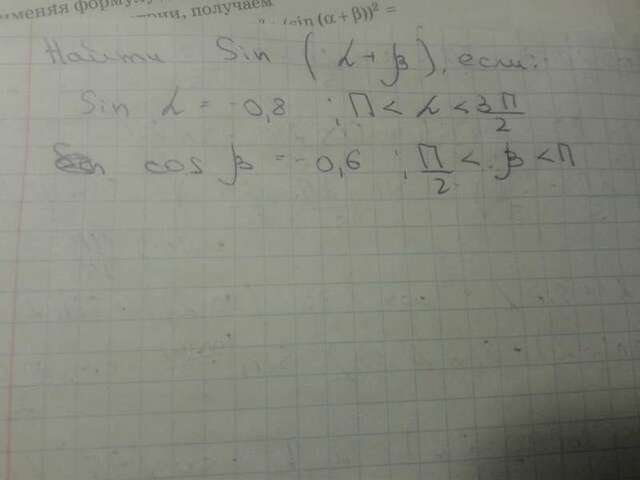 меняя формулу
получаем
(sin (α + β))² =
Найти Sin (α + β), если:
Sin α = -0,8 ; П < α < 3П/2
cos β = -0,6 ; П/2 < β < П